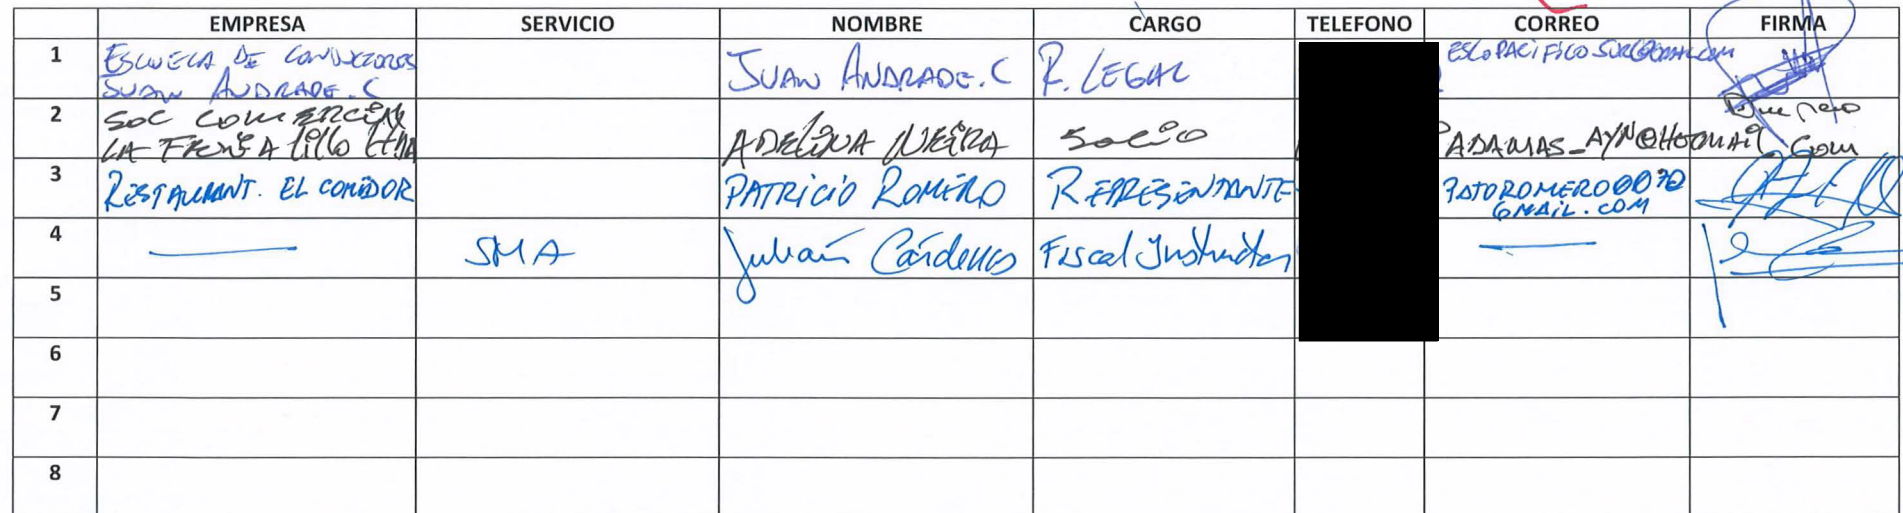 EMPRESA SERVICIO NOMBRE CARGO TELEFONO CORREO FIRMA
1 ESCUELA DE CONDUCTORES JUAN ANDRADE.C R. LEGAL
JUAN ANDRADE.C
2 SOC COMERCIAL ADELINA NEIRA SOCIO ADAMAS_AYN@HOTMAIL.COM
LA
3 RESTAURANT. EL COMEDOR PATRICIO ROMERO REPRESENTANTE PATOROMERO0070
GMAIL.COM
4 — SMA Julián Cárdenas Fiscal Instructor —
5
6
7
8